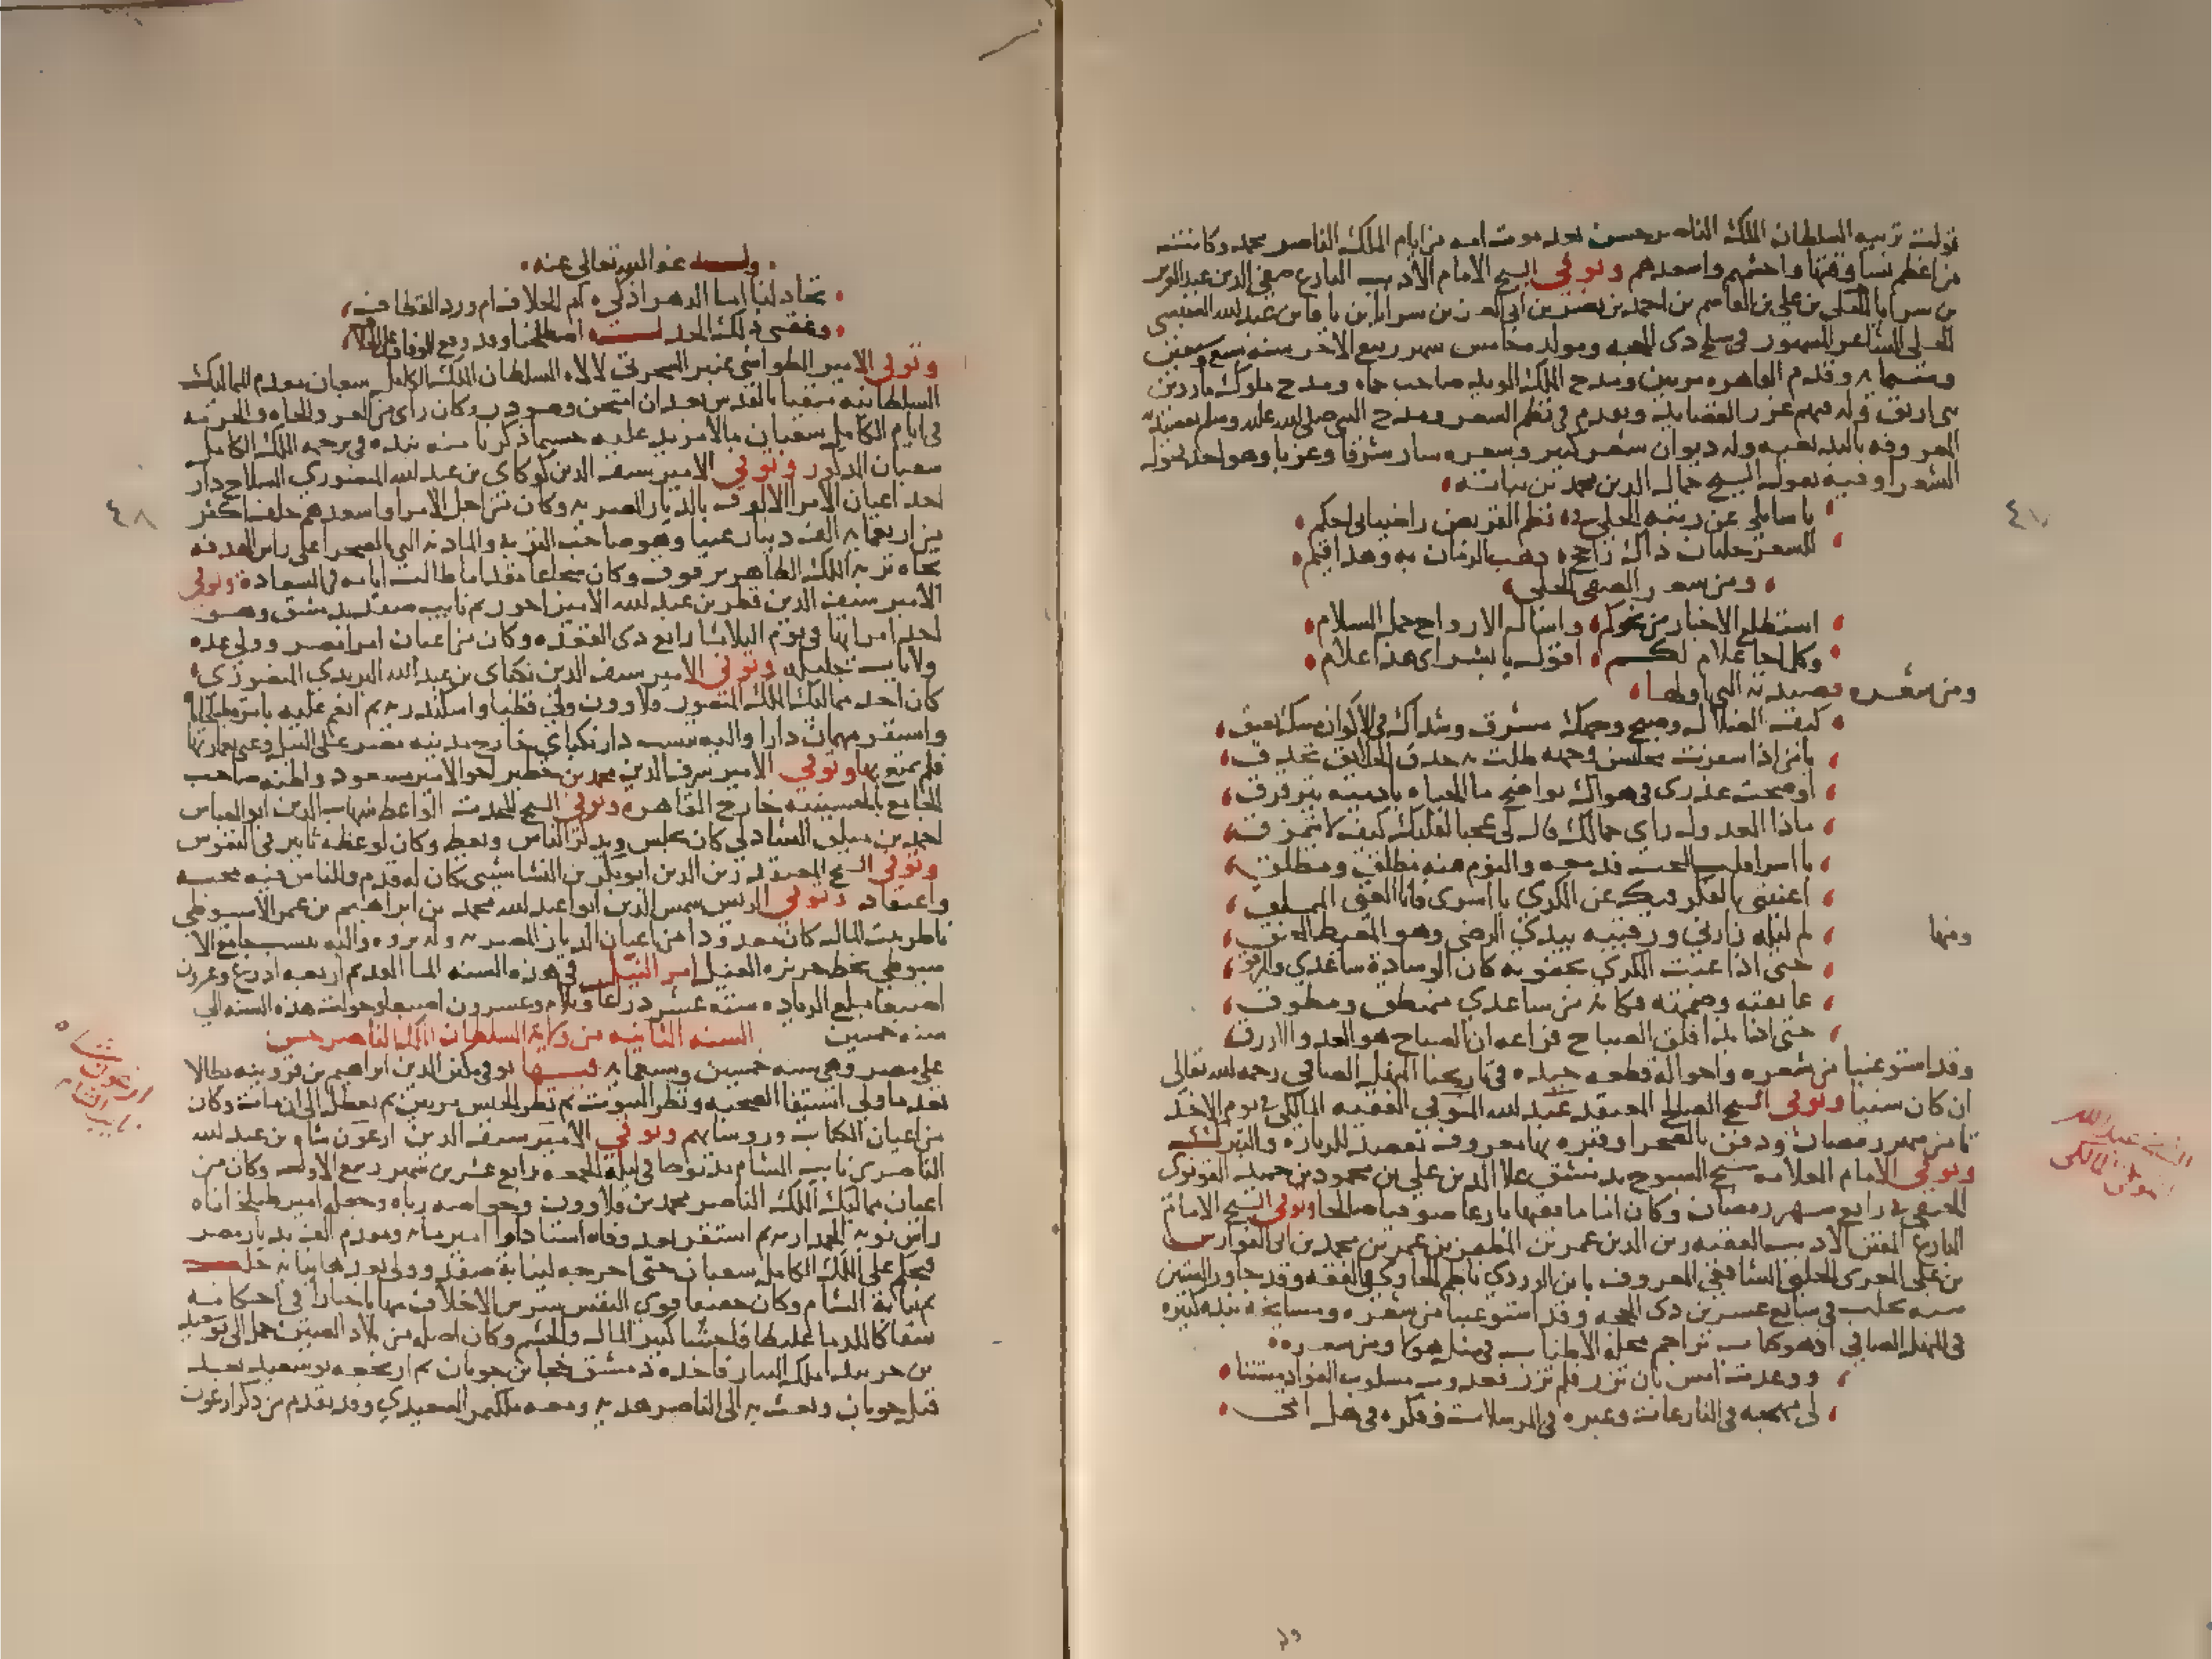 تولت تربيه السلطان الملك الناصر حسن بعد موت امه من ايام الملك الناصر محمد وكانت
من اعظم نسا وقتها واحشمهم واسعدهم وتوفي الشيخ الامام الأديب البارع صفي الدين عبد العزيز
بن سرايا بن علي بن القاسم بن احمد بن نصر بن ابي العز بن سرايا بن باقا بن عبد الله السنبسي
الحلي الشاعر المشهور في سلخ ذي الحجه ومولده خامس شهر ربيع الاخر سنه سبع وسبعين
وستمايه وقدم القاهره مرتين ومدح الملك المويد صاحب حماه ومدح ملوك ماردين
بني ارتق وله فيهم غرر القصايد وتقدم في نظم الشعر ومدح النبي صلى الله عليه وسلم بقصيدته
المعروفه بالبديعيه وله ديوان شعر كبير وشعره سار شرقا وغربا وهو احد فحوله
الشعرا وفيه يقول الشيخ جمال الدين محمد بن نباته
يا سايلي عن رتبه الحلي في نظم القريض راضيا بي احكم
للشعر حليان ذاك راجح ذهب الزمان به وهذا قيم
ومن شعر الصفي الحلي
استطلع الاخبار من نحوكم واسال الارواح حمل السلام
وكلما جا غلام لكم اقول يا بشراي هذا غلام
ومن شعره قصيدته التي اولها
كيف الضلال وصبح وجهك مشرق وشذاك في الاكوان مسك يعبق
يا من اذا سفرت محاسن وجهه ظلت به حدق الخلايق تحدق
اوضحت عذري في هواك بواضح ما الحياه باديمه يترقرق
فاذا العذول راي جمالك قال لي عجبا لقلبك كيف لا يتمزق
يا اسرا قلب المحب فدمعه والنوم منه مطلق ومطلق
اغنيتني بالفكر فيك عن الكري يا اسري فانا الغني المملق
ومنها
لم ليله زارني ورقيبه يبدي الرضي وهو المغيظ المحنق
حتى اذا عبث الكري بجفونه كان الوساده ساعدي والمرفق
عانقته وضممته فكانه من ساعدي ممنطق ومطوق
حتى بدا فلق الصباح فراعه ان الصباح هو العدو الازرق
وقد استوعبنا من شعره واحواله قطعه جيده في تاريخنا المنهل الصافي رحمه الله تعالى
ان كان سنيا وتوفي الشيخ الصالح المعتقد عبد الله المنوفي الفقيه المالكي في يوم الاحد
ثامن شهر رمضان ودفن بالصحرا وقبره بها معروف يقصد للزياره والتبرك
وتوفي الامام العلامه شيخ الشيوخ بدمشق علا الدين علي بن محمود بن حميد القونوي
الحنفي في رابع شهر رمضان وكان اماما فقيها بارعا صوفيا صالحا وتوفي الشيخ الامام
البارع المفنن الاديب الفقيه زين الدين عمر بن المظفر بن عمر بن محمد بن ابي الفوارس
بن علي المعري الحلبي الشافعي المعروف بابن الوردي ناظم الحاوي في الفقه وقد جاوز الستين
سنه بحلب في سابع عشرين ذي الحجه وقد استوعبنا من شعره ومشايخه نبذه كبيره
في المنهل الصافي اذ هو كتاب تراجم محله الاطناب في مثل هذا ومن شعره
ووعدت امس بان تزور فلم تزر فغدوت مسلوب الفواد مشتتا
لي مهجه في النازعات وعبره في المرسلات وفكره في هل اتى
٤٧
الشيخ عبد الله
المنوفي المالكي
وله عفا الله تعالى عنه
تجادلنا اما الزهر اذكى ام الخلاف ام ورد القطاف
وعقبى ذلك الجدل اصطلحنا وقد وقع الوفاق على الخلاف
وتوفي الامير الطواشي عنبر السحرتي لالاه السلطان الملك الكامل شعبان مقدم المماليك
السلطانيه منفيا بالقدس بعد ان امتحن وصودر وكان راى من العز والجاه والحرمه
في ايام الكامل شعبان ما لا مزيد عليه حسبما ذكرنا منه نبذه في ترجمه الملك الكامل
شعبان المذكور وتوفي الامير سيف الدين كوكاي بن عبد الله المنصوري السلاح دار
احد اعيان الامرا الالوف بالديار المصريه وكان من اجل الامرا واسعدهم خلف اكثر
من اربعمايه الف دينار عينا وهو صاحب التربه والمادنه التي بالصحرا على راس الهدفه
تجاه تربه الملك الظاهر برقوق وكان شجاعا مقداما طالت ايامه في السعاده وتوفي
الامير سيف الدين قطز بن عبد الله الامير اخور ثم نايب صفد بدمشق وهو
احد امرايها في يوم الثلاثا رابع ذي القعده وكان من اعيان امرا مصر وولي عده
ولايات جليله وتوفي الامير سيف الدين نكباي بن عبد الله البريدي المنصوري
كان احد مماليك الملك المنصور قلاوون ولي قطيا واسكندريه ثم انعم عليه بامره طبلخاناه
واستقر مهمان دارا واليه تنسب دار نكباي خارج مدينه مصر على النيل وعني بعمارتها
فلم يمتع بها وتوفي الامير شرف الدين محمود بن خطير اخو الامير مسعود واظنه صاحب
الجامع بالحسينيه خارج القاهره وتوفي الشيخ المحدث الواعظ شهاب الدين ابو العباس
احمد بن ميلق الشاذلي كان يجلس ويذكر الناس ويعظ وكان لوعظه تاثير في النفوس
وتوفي الشيخ المعتقد زين الدين ابو بكر بن النشاشيبي كان له قدم وللناس فيه محبه
واعتقاد وتوفي الريس شمس الدين ابو عبد الله محمد بن ابراهيم بن عمر الأسيوطي
ناظر بيت المال كان معدودا من اعيان الديار المصريه وله ثروه واليه ينسب جامع الا
سيوطي بخط جزيره الفيل امر النيل في هذه السنه الما القديم اربعه اذرع وعشرون
اصبعا مبلغ الزياده سته عشر ذراعا وثلاثه وعشرون اصبعا وحولت هذه السنه الي
سنه خمسين السنه الثانيه من ولايه السلطان الملك الناصر حسن
على مصر وهي سنه خمسين وسبعمايه فيها توفي مكين الدين ابراهيم بن قزوينه بطالا
بعد ما ولي استيفا الصحبه ونظر البيوت ثم نظر الجيش مرتين ثم تعطل الى ان مات وكان
من اعيان الكتاب وروسايهم وتوفي الامير سيف الدين ارغون شاه بن عبد الله
الناصري نايب الشام مذبوحا في ليله الجمعه رابع عشرين شهر ربيع الاول وكان من
اعيان مماليك الملك الناصر محمد بن قلاوون وخواصه رباه وجعله امير طبلخاناه
راس نوبه الجمداريه ثم استقر بعد وفاه استادارا امير مايه ومقدم الف بديار مصر
فتحكم على الملك الكامل شعبان حتى اخرجه لنيابة صفد وولي بعدها نيابه حلب
ثم نيابة الشام وكان خفيفا قوي النفس شرس الاخلاق مهابا جبارا في احكامه
سفاكا للدما غليظا فاحشا كثير المال والحشم وكان اصله من بلاد الصين حمل الى بوسعيد
بن خربندا ملك التتار فاخذه دمشق خجا بن جوبان ثم ارتجعه بوسعيد بعد
قتل جوبان وبعث به الى الناصر هديه ومعه ملكتمر السعيدي وقد تقدم من ذكر ارغون
٤٨
ارغون شاه
نايب الشام